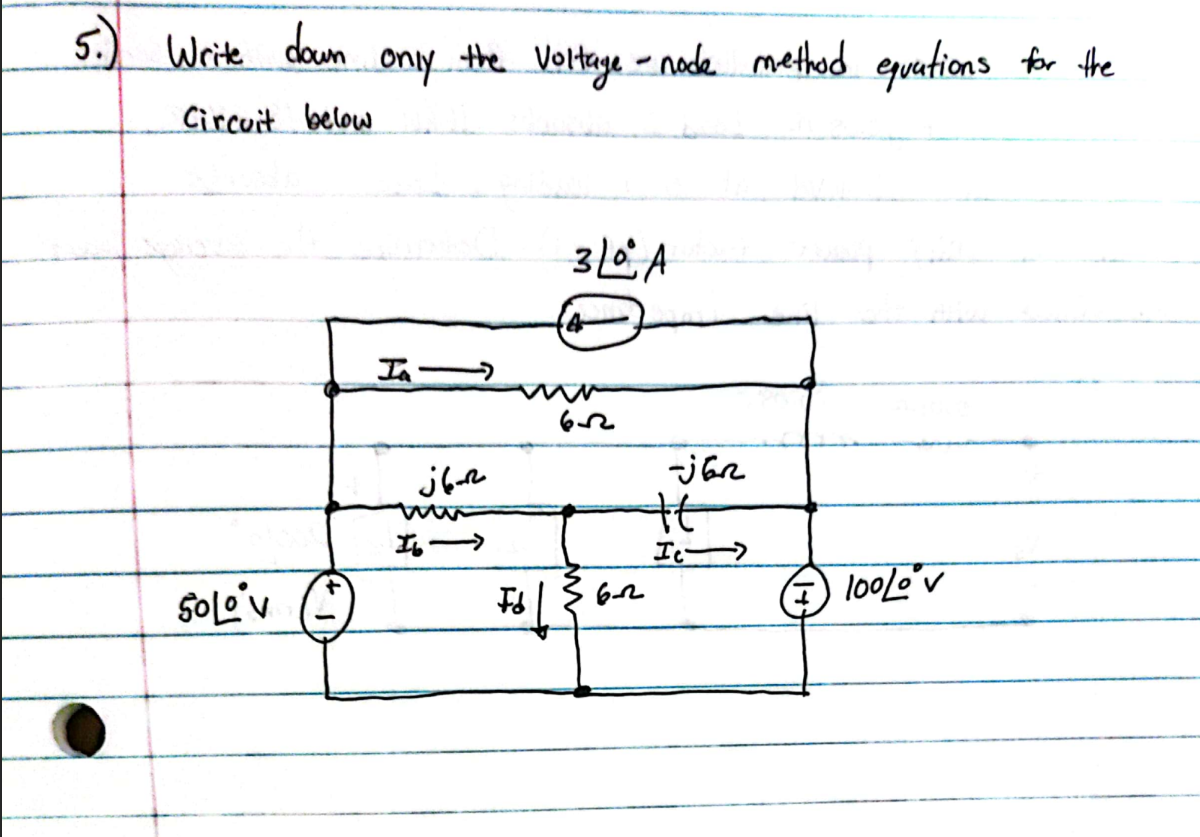 5.) Write down only the Voltage - node method equations for the
Circuit below
3∠0° A
Ia →
6Ω
j6Ω
-j6Ω
Ib →
Ic →
50∠0° V
+
-
Id ↓
6Ω
-
+
100∠0° V